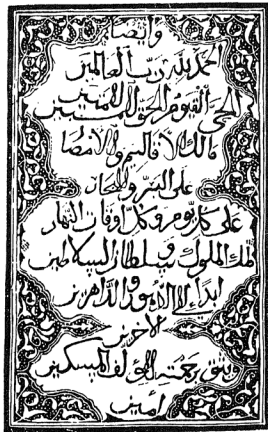 وايضا
الحمد لله رب العالمين
الحى القيوم الحق المبين
مالك الافاليم والامصا
على السر
على كل يوم وكل اوقات النهار
ملك الملوك وسلطان السلاطين
ابدا الى الابد ود الداهرين
الاخرين
رحمته المسكين
امين